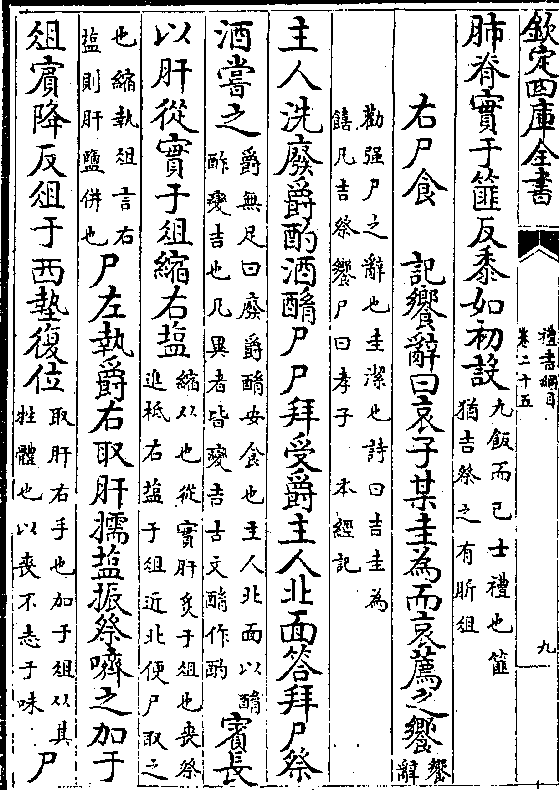 欽定四庫全書
禮書綱目
卷二十五
九
肺脊實于篚反黍如初設
九飯而已士禮也篚
猶吉祭之有肵俎
右尸食
記饗辭曰哀子某圭為而哀薦之饗
饗
辭
勸强尸之辭也圭潔也詩曰吉圭為
饎凡吉祭饗尸曰孝子
本經記
主人洗廢爵酌酒酳尸尸拜受爵主人北面答拜尸祭
酒嘗之
爵無足曰廢爵酳安食也主人北面以酳
酢變吉也凡異者皆變吉古文酳作酌
賓長
以肝從實于俎縮右塩
縮從也從實肝炙于俎也喪祭
進柢右塩于俎近北便尸取之
也縮執俎言右
塩則肝鹽併也
尸左執爵右取肝擩塩振祭嚌之加于
俎賓降反俎于西塾復位
取肝右手也加于俎從其
牲體也以喪不志于味
尸